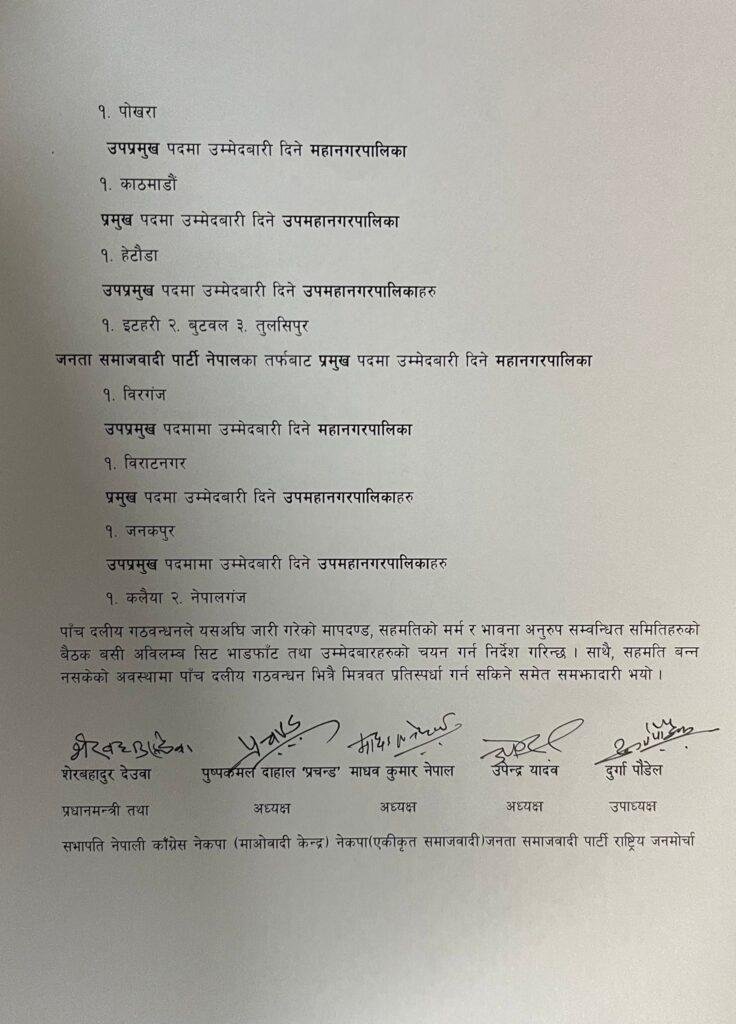 १. पोखरा
उपप्रमुख पदमा उम्मेदबारी दिने महानगरपालिका
१. काठमाडौं
प्रमुख पदमा उम्मेदबारी दिने उपमहानगरपालिका
१. हेटौडा
उपप्रमुख पदमा उम्मेदबारी दिने उपमहानगरपालिकाहरु
१. इटहरी २. बुटवल ३. तुलसिपुर
जनता समाजवादी पार्टी नेपालका तर्फबाट प्रमुख पदमा उम्मेदबारी दिने महानगरपालिका
१. विरगंज
उपप्रमुख पदमामा उम्मेदबारी दिने महानगरपालिका
१. विराटनगर
प्रमुख पदमा उम्मेदबारी दिने उपमहानगरपालिकाहरु
१. जनकपुर
उपप्रमुख पदमामा उम्मेदबारी दिने उपमहानगरपालिकाहरु
१. कलैया २. नेपालगंज
पाँच दलीय गठवन्धनले यसअघि जारी गरेको मापदण्ड, सहमतिको मर्म र भावना अनुरुप सम्वन्धित समितिहरुको
बैठक बसी अविलम्ब सिट भाडफाँट तथा उम्मेदबारहरुको चयन गर्न निर्देश गरिन्छ । साथै, सहमति बन्न
नसकेको अवस्थामा पाँच दलीय गठवन्धन भित्रै मित्रवत प्रतिस्पर्धा गर्न सकिने समेत समझदारी भयो ।
शेरबहादुर देउवा प्रचण्ड माधव कु नेपाल
शेरबहादुर देउवा पुष्पकमल दाहाल 'प्रचन्ड' माधव कुमार नेपाल उपेन्द्र यादव दुर्गा पौडेल
प्रधानमन्त्री तथा अध्यक्ष अध्यक्ष अध्यक्ष उपाध्यक्ष
सभापति नेपाली काँग्रेस नेकपा (माओवादी केन्द्र) नेकपा(एकीकृत समाजवादी)जनता समाजवादी पार्टी राष्ट्रिय जनमोर्चा